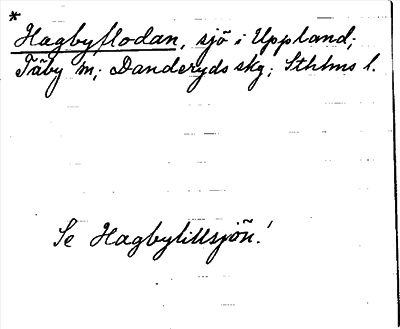 *
Hagbyflodan, sjö i Uppland;
Täby m; Danderyds skg; Sthlms l.
Se Hagbylillsjön!